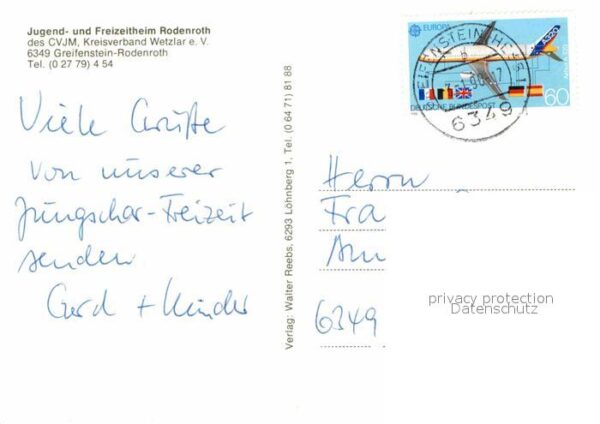 Jugend- und Freizeitheim Rodenroth
des CVJM, Kreisverband Wetzlar e. V.
6349 Greifenstein-Rodenroth
Tel. (0 27 79) 4 54
Viele Grüße
von unserer
Jungschar-Freizeit
senden
Gerd + Kinder
Verlag: Walter Reebs, 6293 Löhnberg 1, Tel. (0 64 71) 81 88
EUROPA
A320
DEUTSCHE BUNDESPOST
60
GREIFENSTEIN, HESS 1
6349
Herrn
Fra
Am
6349
privacy protection
Datenschutz